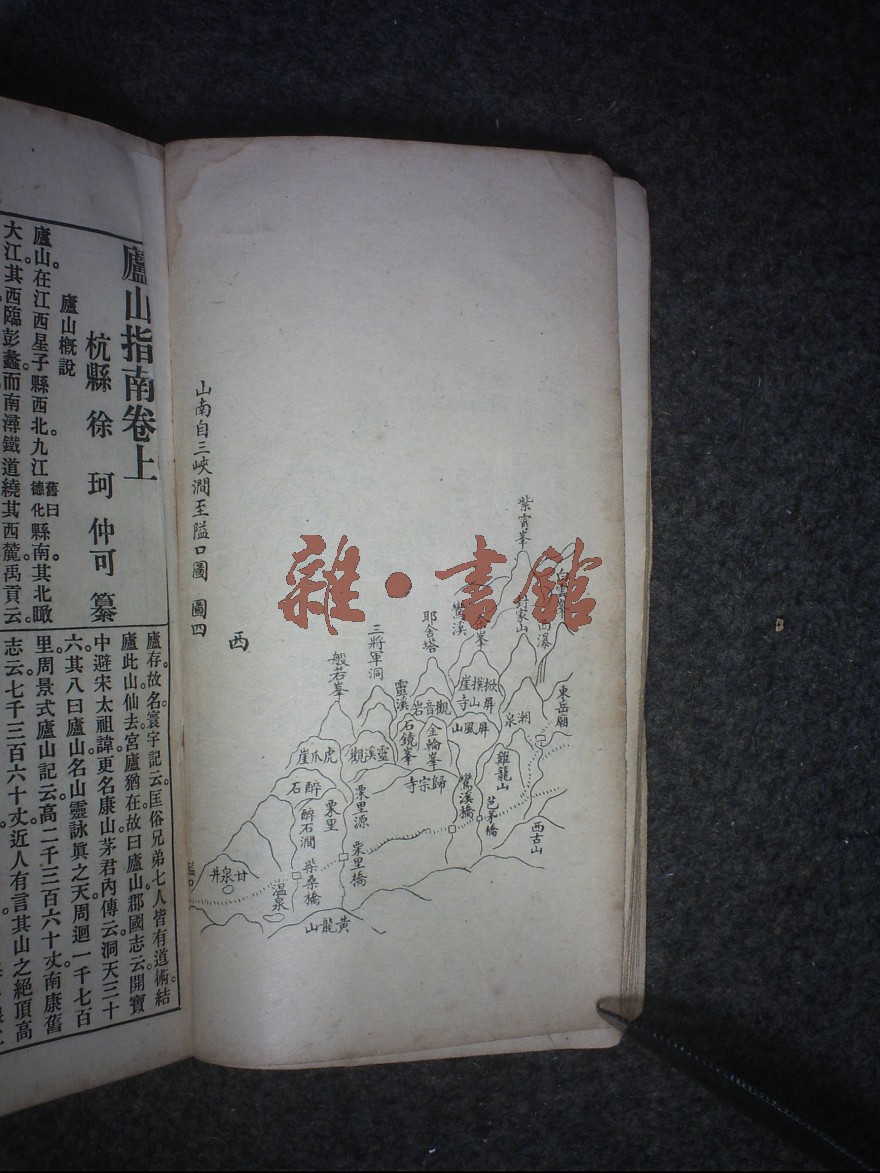 山南自三峽澗至隘口圖 圖四
西
紫霄峯
鸞溪
耶舍塔
三將軍洞
般若峯
東岳廟
靈溪
觀音岩
屏風山
湖泉
石鏡峯
金輪峯
雞籠山
虎爪崖
靈溪觀
歸宗寺
醉石
栗里
栗里源
鸞溪橋
芭茅橋
醉石澗
西古山
栗里橋
柴桑橋
甘泉井
温泉
黃龍山
雜·書館
廬山指南卷上
杭縣 徐 珂 仲可 纂
廬山概說
廬山。在江西星子縣西北九江舊曰德化。縣南其北瞰
大江。其西臨彭蠡。而南潯鐵道繞其西麓。禹貢云
廬存。故名。寰宇記云。匡俗兄弟七人皆有道術。結
廬此山。仙去。宮廬猶在。故曰廬山。郡國志云。開寶
中避宋太祖諱。更名康山。茅君內傳云。洞天三十
六。其八曰廬山。名山靈詠真之天。周迴一千七百
里。周景式廬山記云。高二千三百六十丈。南康舊
志云。七千三百六十丈。近人有言其山之絕頂高